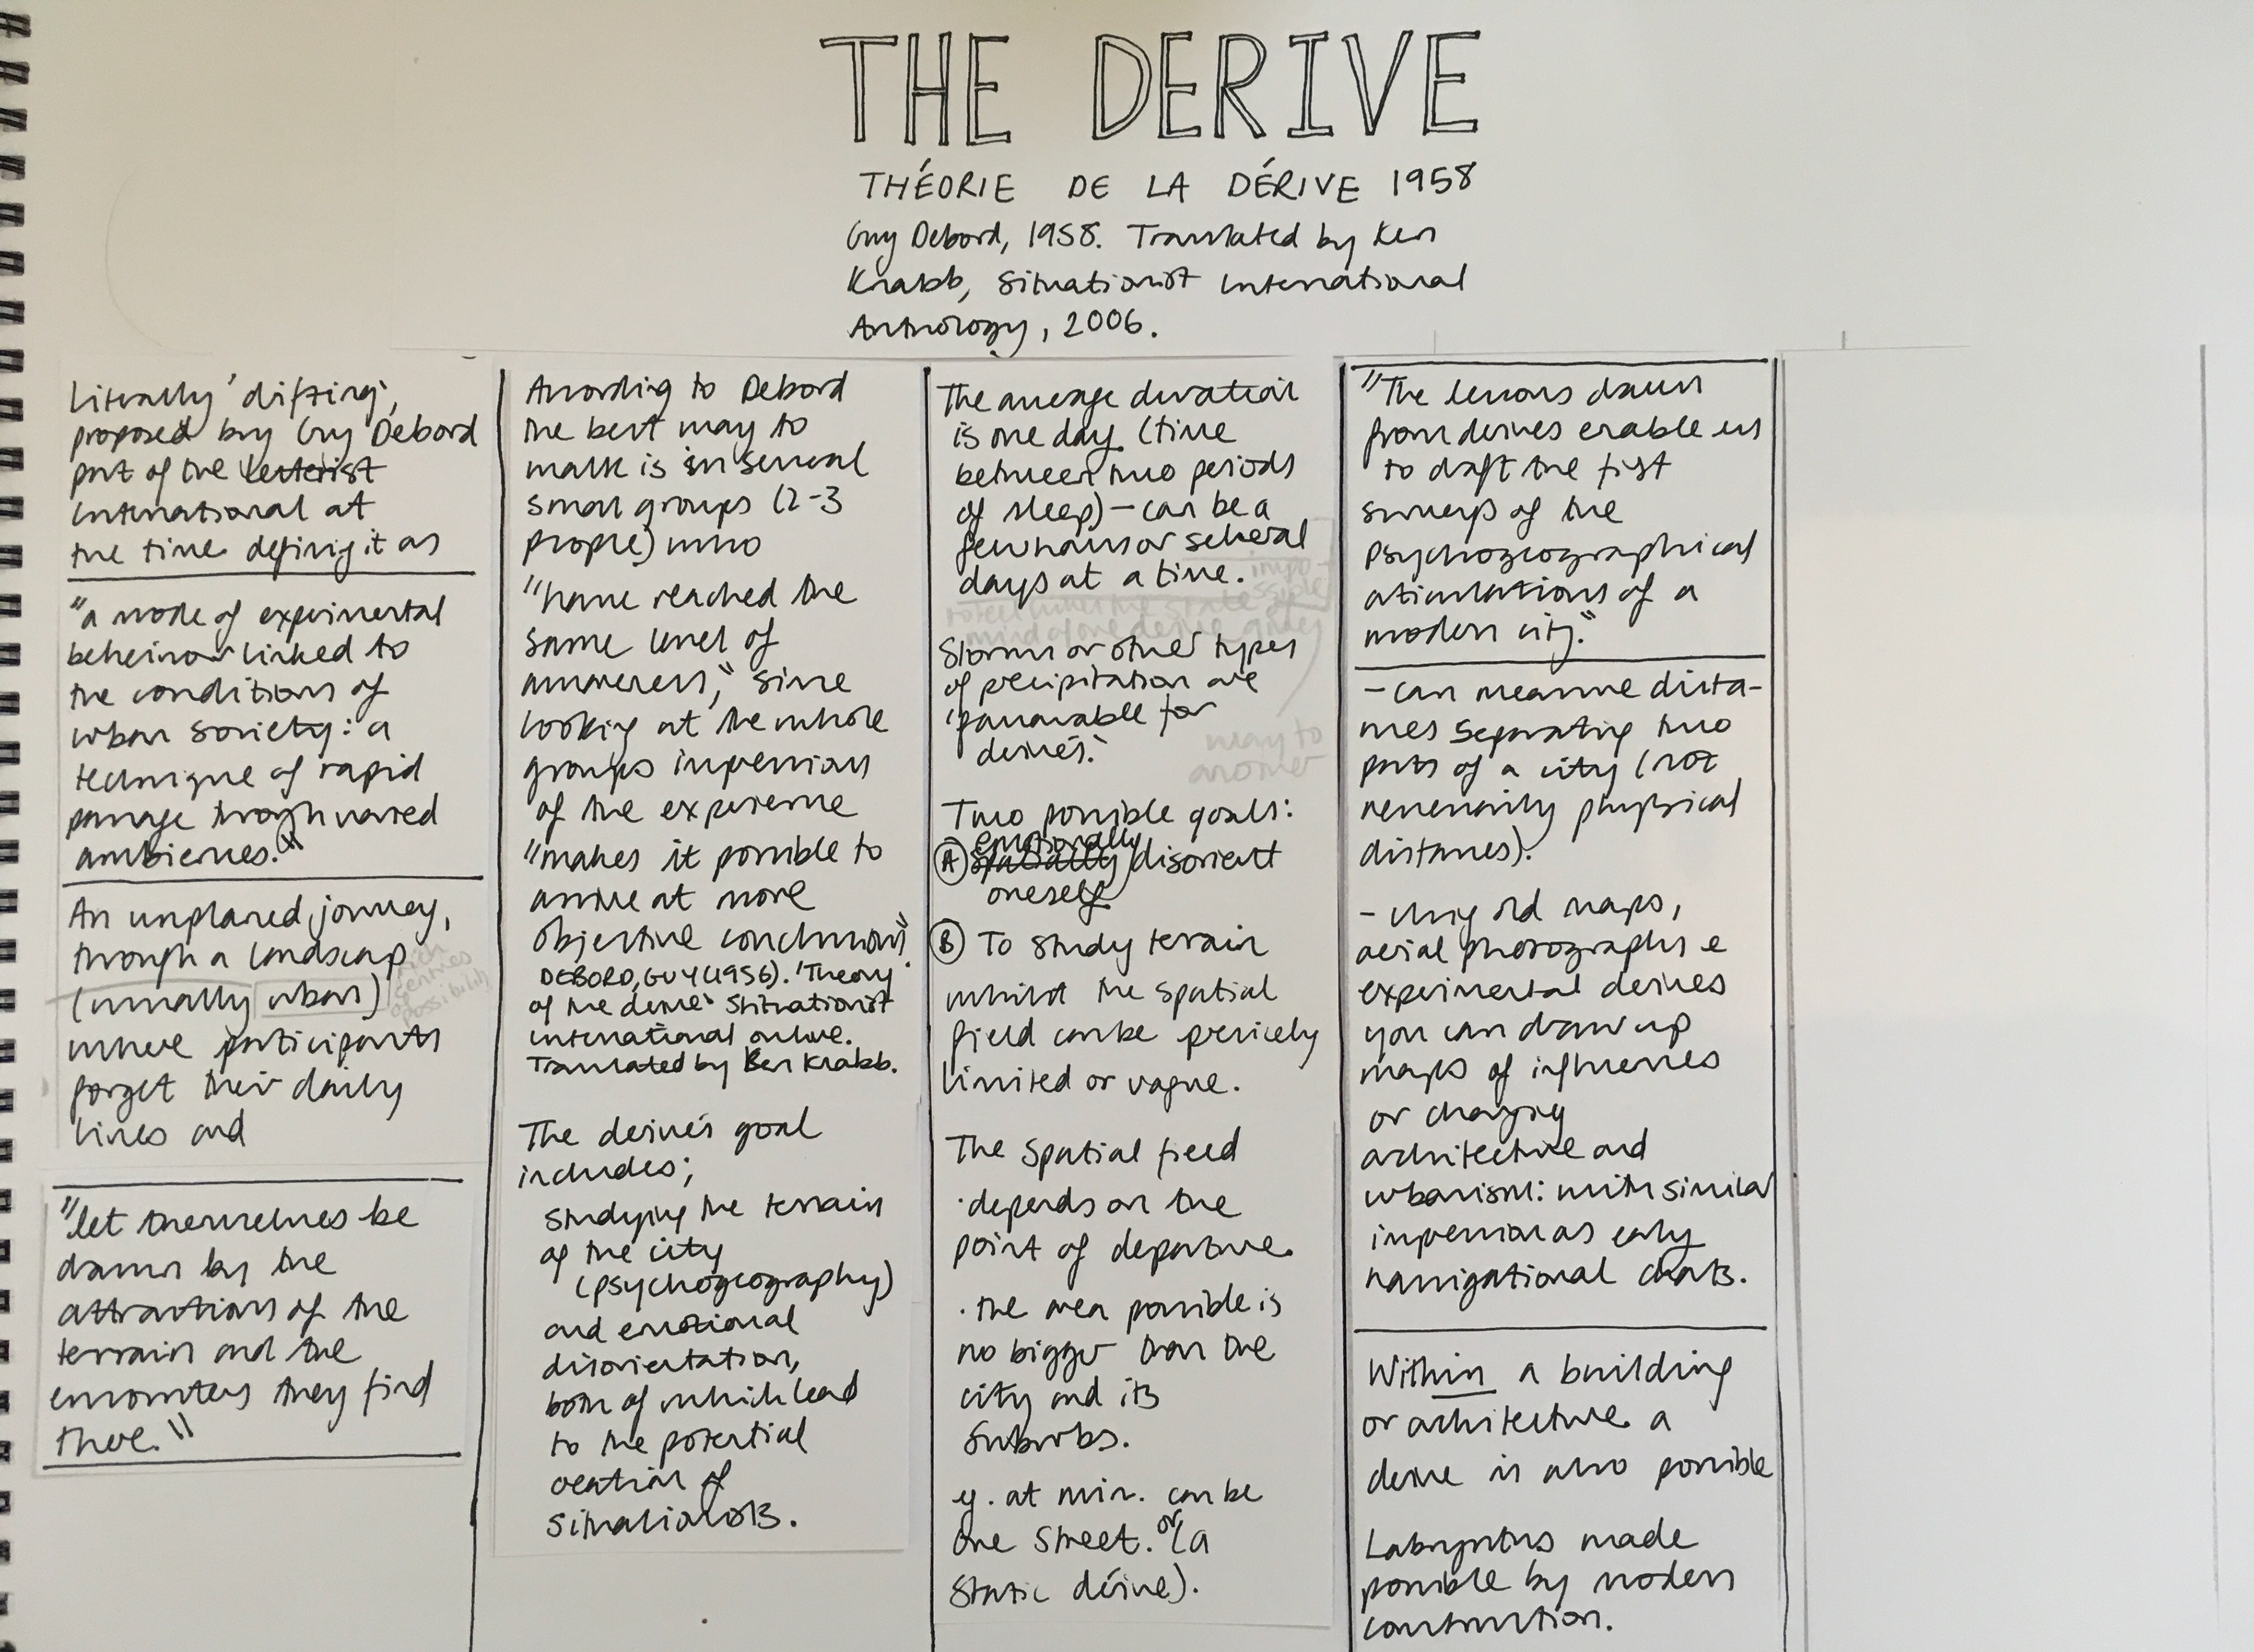 THE DERIVE
THÉORIE DE LA DÉRIVE 1958
Guy Debord, 1958. Translated by Ken
Knabb, Situationist International
Anthology, 2006.
Literally 'drifting',
proposed by Guy Debord
part of the Letterist
International at
the time defining it as
"a mode of experimental
behaviour linked to
the conditions of
urban society: a
technique of rapid
passage through varied
ambiences."
An unplanned journey,
through a landscap
(usually urban)
rich
centres
of
possibility
where participants
forget their daily
lives and
"let themselves be
drawn by the
attractions of the
terrain and the
encounters they find
there."
According to Debord
the best way to
walk is in several
small groups (2-3
people) who
"have reached the
same level of
awareness," since
looking at the whole
groups impression
of the experience
"makes it possible to
arrive at more
objective conclusions"
DEBORD, GUY (1956). 'Theory
of the derive' Situationist
international online.
Translated by Ken Knabb.
The derive's goal
includes;
studying the terrain
of the city
(psychogeography)
and emotional
disorientation,
both of which lead
to the potential
creation of
situations.
The average duration
is one day (time
between two periods
of sleep) - can be a
few hours or several
days at a time.
impo-
ssible
mind of one derive
Storms or other types
of precipitation are
'favourable for
derives'.
way to
another
Two possible goals:
emotionally
(A) spatially disorient
oneself
(B) To study terrain
whilst the spatial
field can be precisely
limited or vague.
The spatial field
·depends on the
point of departure.
· the area possible is
no bigger than the
city and its
suburbs.
eg. at min. can be
one street. or (a
static dérive).
"The lessons drawn
from derives enable us
to draft the first
surveys of the
psychogeographical
aticulations of a
modern city."
- can measure dista-
nces separating two
parts of a city (not
necessarily physical
distances).
- using old maps,
aerial photographs e
experimental derives
you can draw up
maps of influences
or changing
architecture and
urbanism: with similar
impression as early
navigational charts.
Within a building
or architecture a
derive is also possible
Labyrinths made
possible by modern
construction.